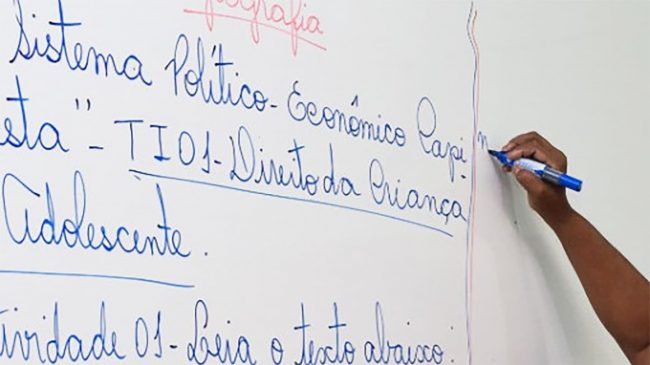 Geografia
Sistema Político-Econômico Capi-
ista" - TI 01 - Direito da Criança
Adolescente.
tividade 01 - Leia o texto abaixo.